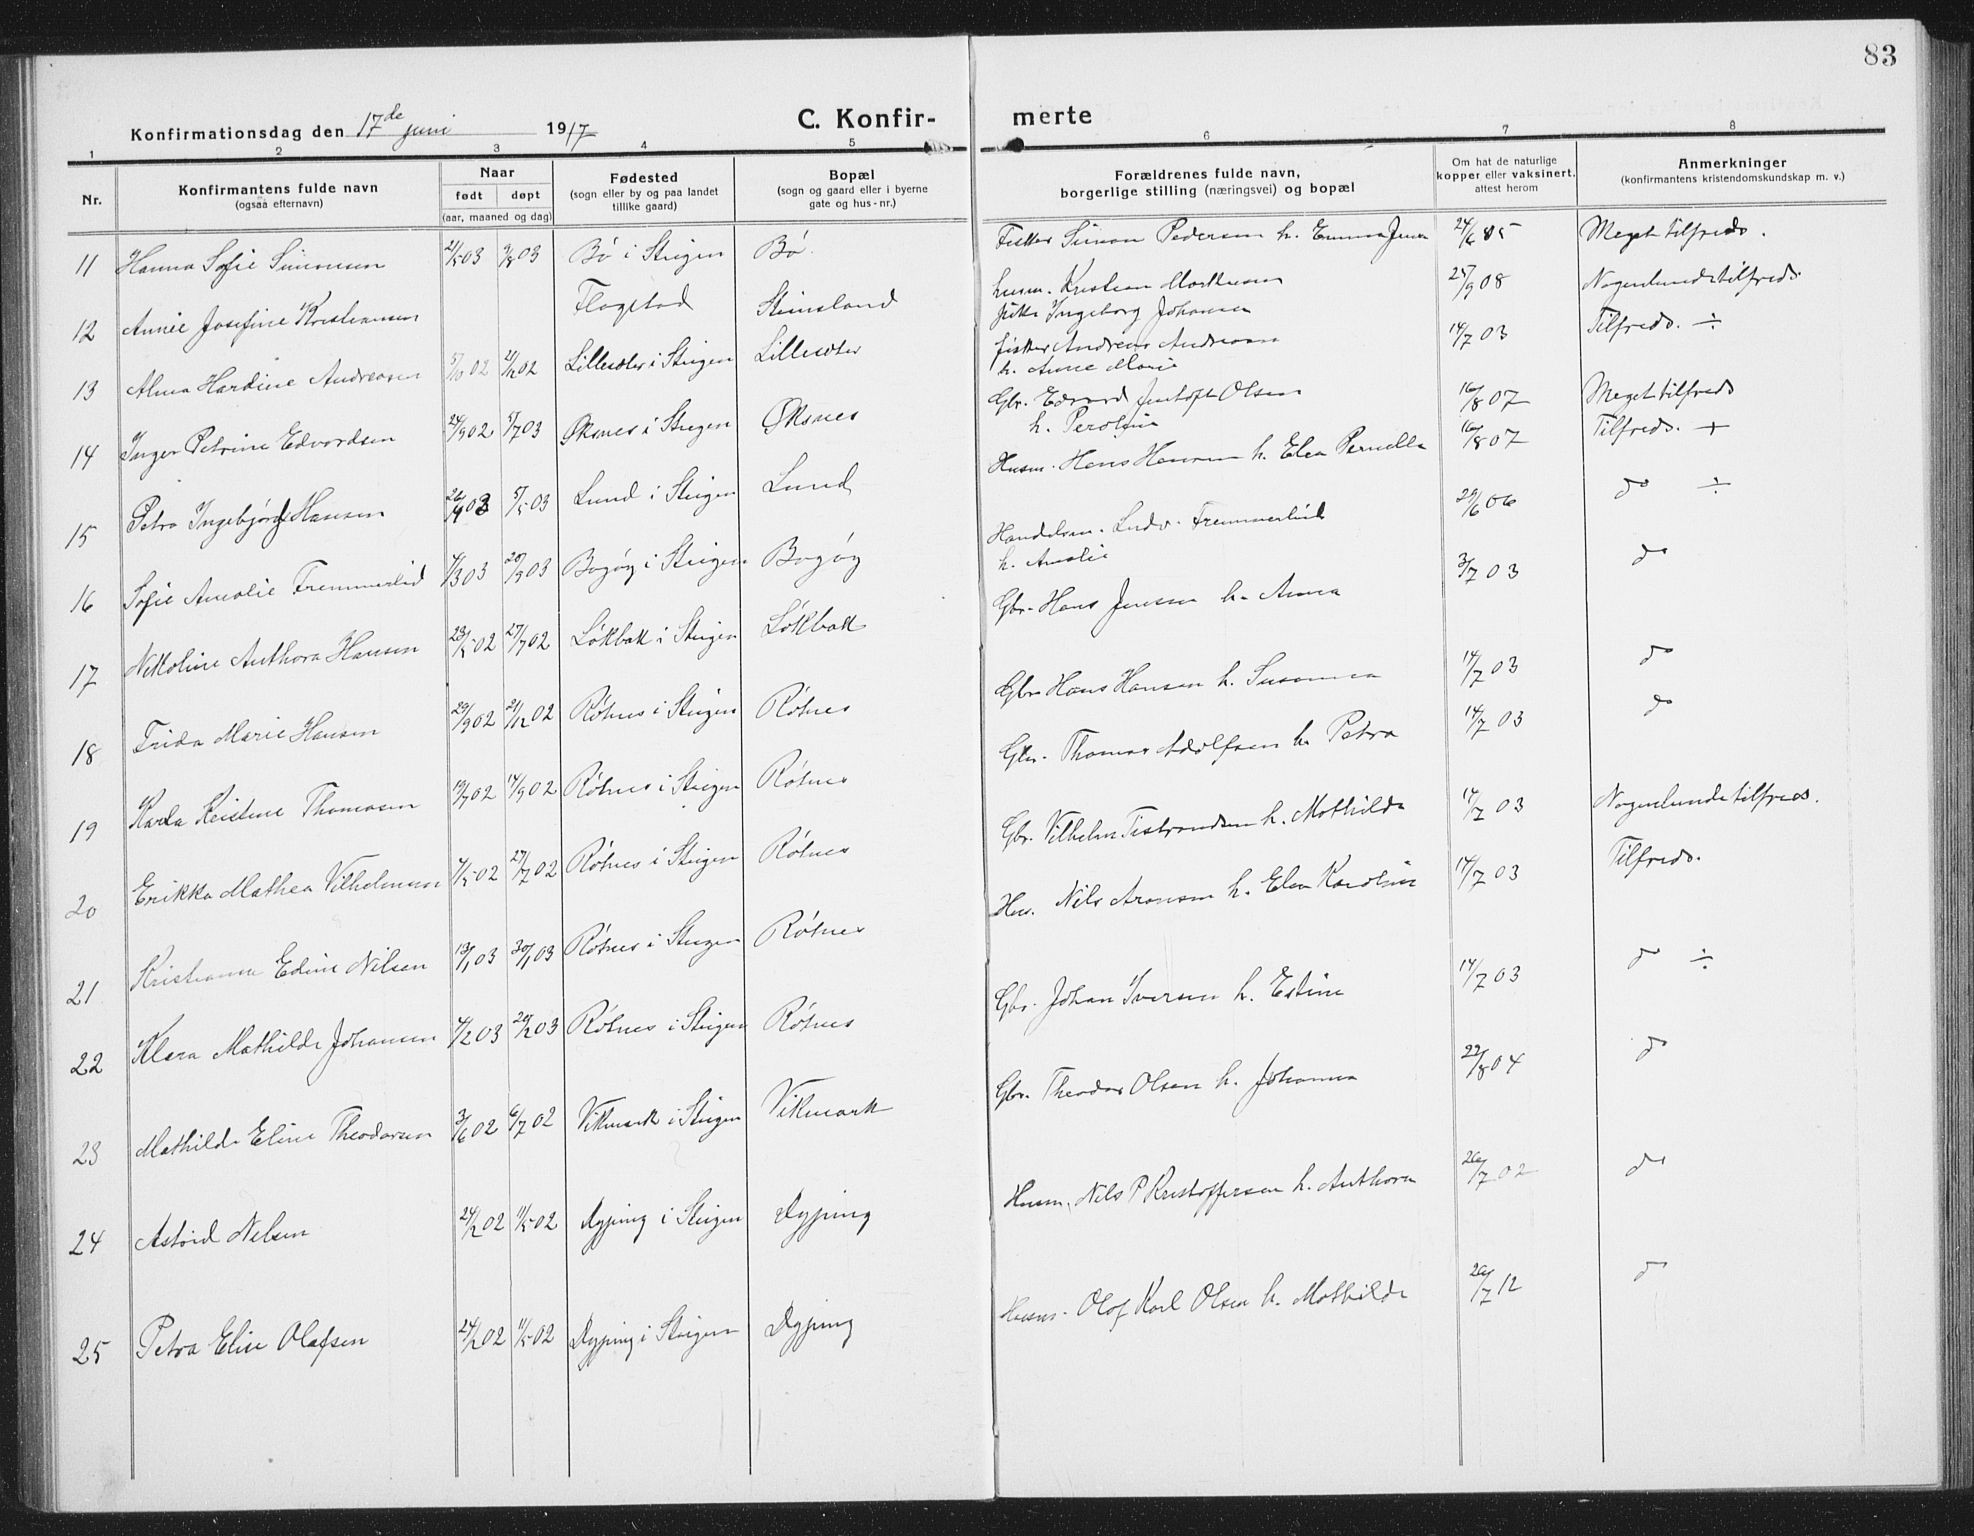 83
Konfirmationsdag den 17de juni 1917
C. Konfir-merte
1 2 3 4 5 6 7 8
Nr.
Konfirmantens fulde navn
(ogsaa efternavn)
Naar
født døpt
(aar, maaned og dag)
Fødested
(sogn eller by og paa landet
tillike gaard)
Bopæl
(sogn og gaard eller i byerne
gate og hus-nr.)
Forældrenes fulde navn,
borgerlige stilling (næringsvei) og bopæl
Om hat de naturlige
kopper eller vaksinert,
attest herom
Anmerkninger
(konfirmantens kristendomskundskap m. v.)
11 Hanna Sofie Simonsen 2/5 03 9/8 03 Bó i Steigen Bó. Fisker Simon Pedersen h. Emma 24/6 Meget tilfreds.
12 Annie Josefine Kristiansen Flagstad Steinsland husm. Kristian 25/9 08 Nogenlunde tilfreds.
Ingeborg Johansen
13 Alma Hardine Andreasen 5/10 02 21/12 02 Lillesæter i Steigen Lillesæter fisker Andreas Andreasen 14/7 03 Tilfreds. ÷
h. Anne Marie
14 Inger Petrine Edvardsen 24/9 02 5/7 03 Øksnes i Steigen Øksnes Gbr. Edvard Jentoft Olsen 16/8 07 Meget tilfreds
h. Peroline
15 Petra Ingebjørg Hansen 26/9 02 5/5 03 Lund i Steigen Lund Husm. Hans Hansen h. Elea Pernella 16/8 07 Tilfreds. +
16 Sofie Amalie Fremmerlid 4/3 03 20/9 03 Bogóy i Steigen Bogóy Handelsm. Ludv. Fremmerlid 29/6 06 do ÷
h. Amalie
17 Nikoline Anthora Hansen 23/5 02 27/7 02 Lókbak i Steigen Lókbak Gbr. Hans Jensen h. Anna 3/7 03 do
18 Frida Marie Hansen 29/9 02 21/12 02 Rótnes i Steigen Rótnes Gbr. Hans Hansen h. Susanna 14/7 03 do
19 Karla Kristine Thomasen 19/7 02 14/9 02 Rótnes i Steigen Rótnes Gbr. Thomas Adolfsen h. Petra 14/7 03 do
20 Erikka Mathea Vilhelmsen 4/5 02 27/7 02 Rótnes i Steigen Rótnes Gbr. Vilhelm Tistrandsen h. Mathilde 14/7 03 Nogenlunde tilfreds.
21 Kristianna Edine Nilsen 13/1 03 30/1 03 Rótnes i Steigen Rótnes Hus. Nils Aronsen h. Elen Karoline 14/7 03 Tilfreds.
22 Klara Mathilde Johansen 4/2 03 20/12 03 Rótnes i Steigen Rótnes Gbr. Johan Iversen h. Estine 14/7 03 do ÷
23 Mathilde Eline Theodorsen 3/6 02 6/7 02 Vikmark i Steigen Vikmark Gbr. Theodor Olsen h. Johanna 22/8 04 do
24 Astrid Nelsen 24/2 02 11/5 02 Dyping i Steigen Dyping Husm. Nils P Kristoffersen h. Anthora 26/7 02 do
25 Petra Elise Olafsen 24/2 02 11/5 02 Dyping i Steigen Dyping Husm. Olaf Karl Olsen h. Mathilde 26/7 12 do